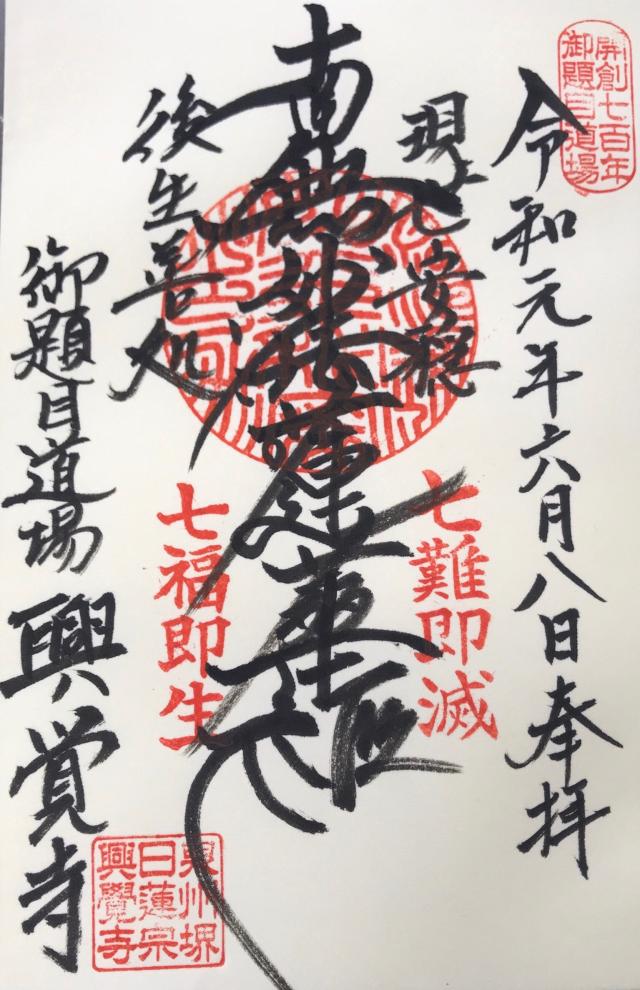 開創七百年
御題目道場
令和元年六月八日奉拝
現世安穏
七難即滅
南無妙法蓮華経
後生善処
七福即生
御題目道場
興覚寺
泉州堺
日蓮宗
興覺寺